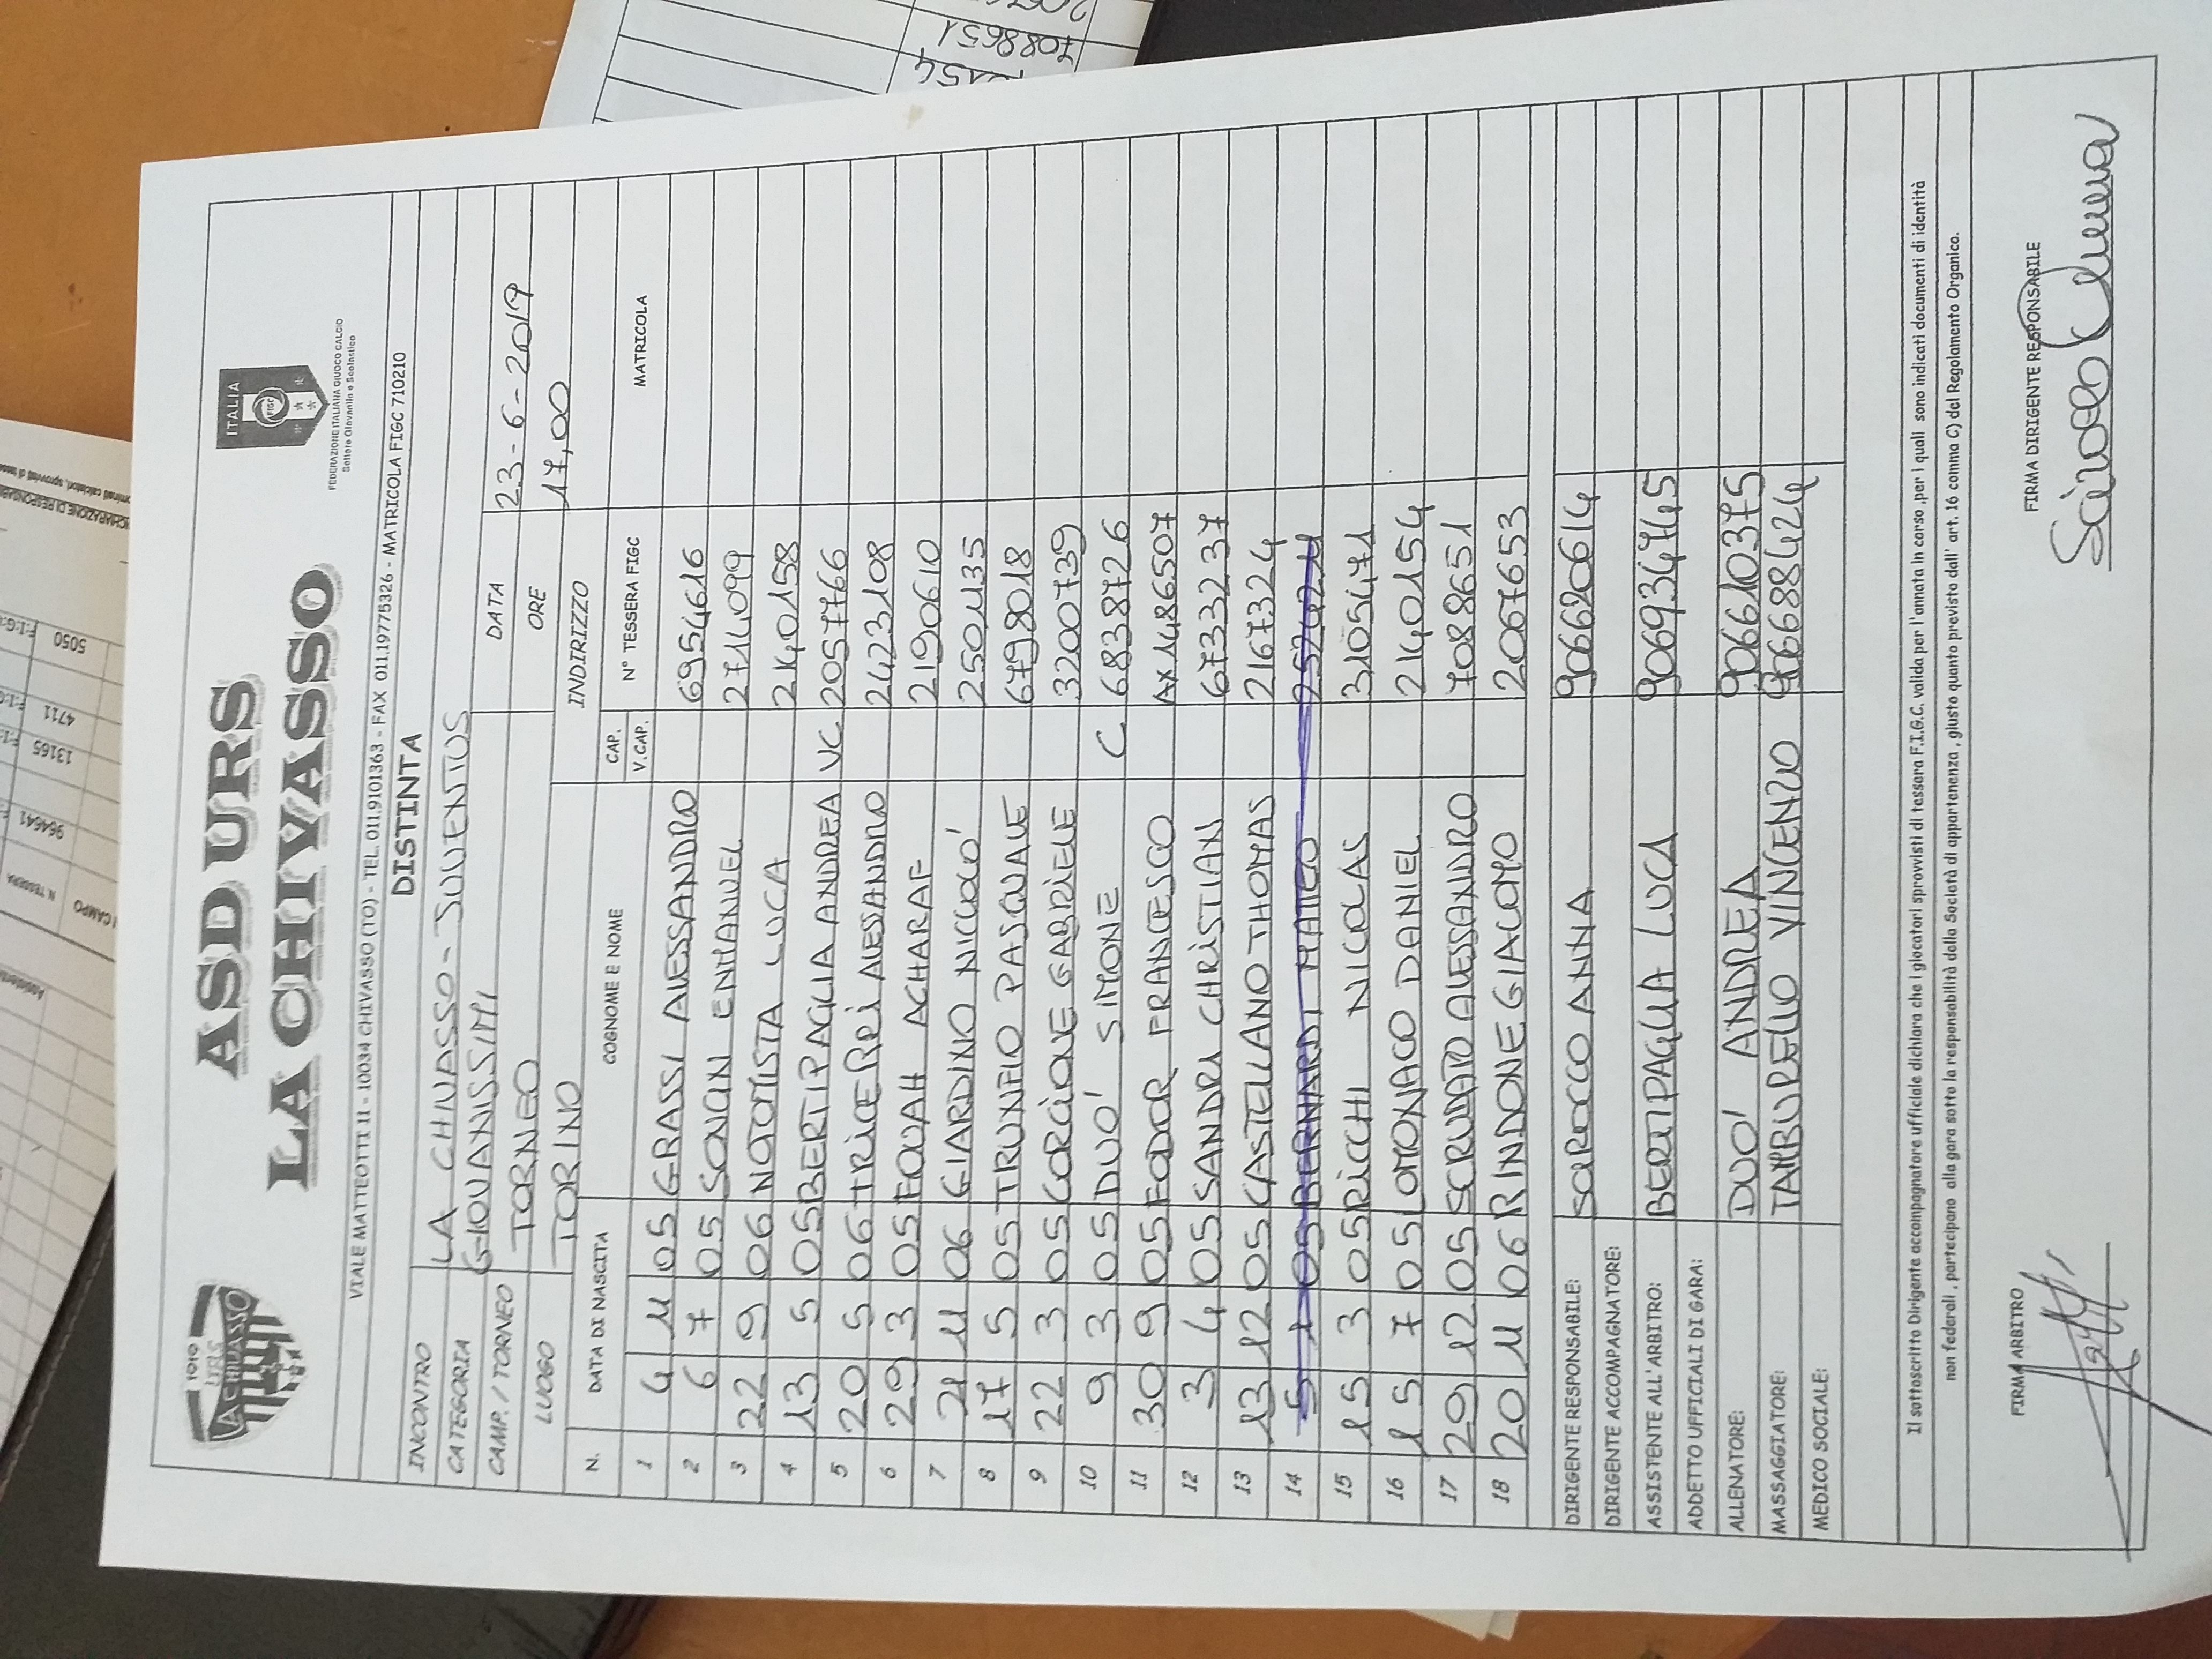 1919
URS
LA CHIVASSO
ASD URS
LA CHIVASSO
ITALIA
FIGC
FEDERAZIONE ITALIANA GIUOCO CALCIO
Settore Giovanile e Scolastico
VIALE MATTEOTTI 11 - 10034 CHIVASSO (TO) - TEL. 011.9101363 - FAX 011.19775326 - MATRICOLA FIGC 710210
DISTINTA
INCONTRO LA CHIVASSO - JUVENTUS
CATEGORIA GIOVANISSIMI DATA 23-6-2019
CAMP. / TORNEO TORNEO ORE 17,00
LUOGO TORINO INDIRIZZO
N. DATA DI NASCITA COGNOME E NOME CAP. V.CAP. N° TESSERA FIGC MATRICOLA
1 4 11 05 GRASSI ALESSANDRO 6954616
2 6 7 05 SONCIN EMANUEL 2714099
3 22 9 06 NOTOMISTA LUCA 2140158
4 13 5 05 BERTIPAGLIA ANDREA VC 2057766
5 20 5 06 TRICERRI ALESSANDRO 2423108
6 29 3 05 FOUAH ACHARAF 2190610
7 21 11 06 GIARDINO NICCOLO' 2501135
8 17 5 05 TRUNFIO PASQUALE 6798018
9 22 3 05 CORCIONE GABRIELE 3200739
10 9 3 05 DUO' SIMONE C 6838726
11 30 9 05 FODOR FRANCESCO AX1486507
12 3 4 05 SANDRU CHRISTIAN 6733237
13 13 12 05 CASTELLANO THOMAS 2167324
14 5 1 05 BERNARDI MATTEO
15 15 3 05 RICCHI NICOLAS 3105471
16 15 7 05 LOMONACO DANIEL 2140154
17 29 12 05 SCRUDATO ALESSANDRO 7088651
18 20 11 06 RINDONE GIACOMO 2067653
DIRIGENTE RESPONSABILE: SAROCCO ANNA 906620614
DIRIGENTE ACCOMPAGNATORE:
ASSISTENTE ALL'ARBITRO: BERTIPAGLIA LUCA 906934745
ADDETTO UFFICIALI DI GARA:
ALLENATORE: DUO' ANDREA 906610375
MASSAGGIATORE: TAMBURELLO VINCENZO 906688424
MEDICO SOCIALE:
Il sottoscritto Dirigente accompagnatore ufficiale dichiara che i giocatori sprovvisti di tessera F.I.G.C. valida per l'annata in corso ,per i quali sono indicati documenti di identità
non federali , partecipano alla gara sotto la responsabilità della Società di appartenenza , giusto quanto previsto dall' art. 16 comma C) del Regolamento Organico.
FIRMA ARBITRO FIRMA DIRIGENTE RESPONSABILE
7088651
5050
4711
13165
964641
N. TESSERA